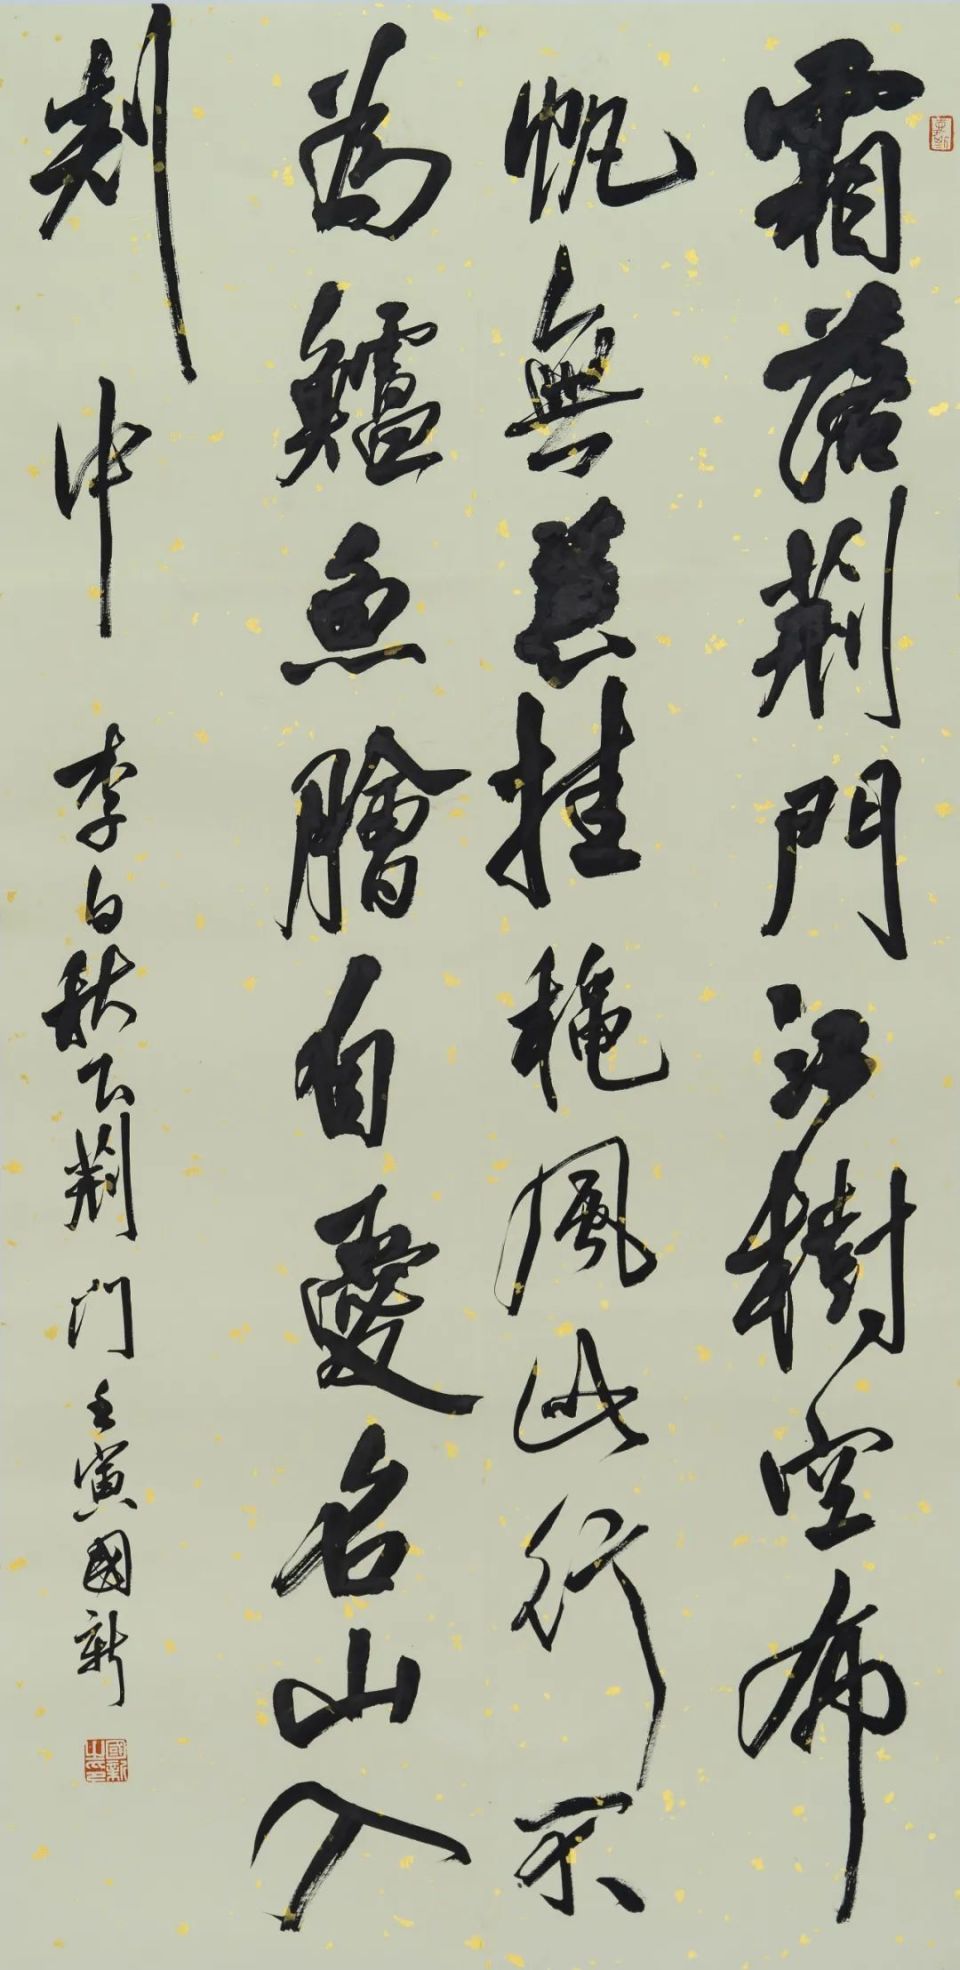 霜落荆門江樹空布
帆無恙挂穐風此行不
為鱸魚膾自愛名山入
剡中 李白秋下荆门 壬寅國新
國新之印